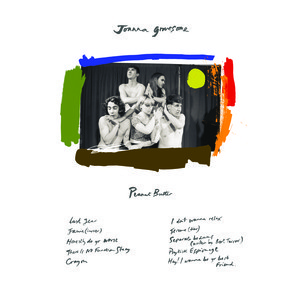 Joanna Gruesome
Peanut Butter
Last Year
Jamie (Luvver)
Honestly do yr Worst
There Is No Function Stacy
Crayon
I dont wanna relax
Jerome (liar)
Separate bedrooms
Psykick Espionage
Hey! I wanna be yr best
Friend